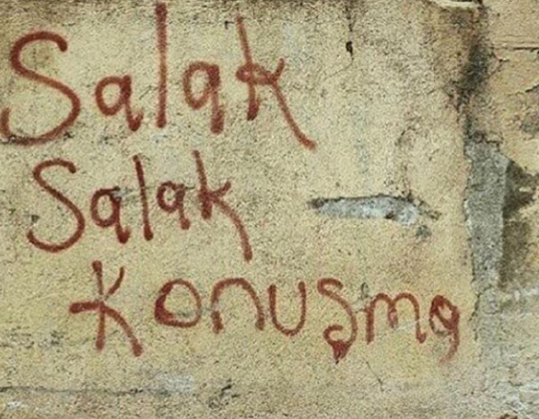 Salak
Salak
Konuşma